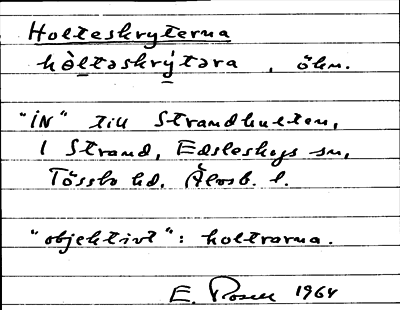 Holteskryterna
hòltəskrýtəra , ökn.
"IN" till Strandhulten,
i Strand, Edsleskogs sn,
Tössbo hd, Älvsb. l.
"objektivt": holtrarna.
E. Rosell 1964